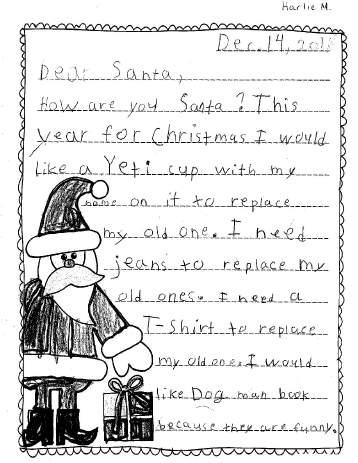 Karlie M.
Dec. 14, 2018
Dear Santa,
How are you Santa? This
year for Christmas I would
like a Yeti cup with my
name on it to replace
my old one. I need
jeans to replace my
old ones. I need a
T-Shirt to replace
my old one. I would
like Dog man book
because they are funny.